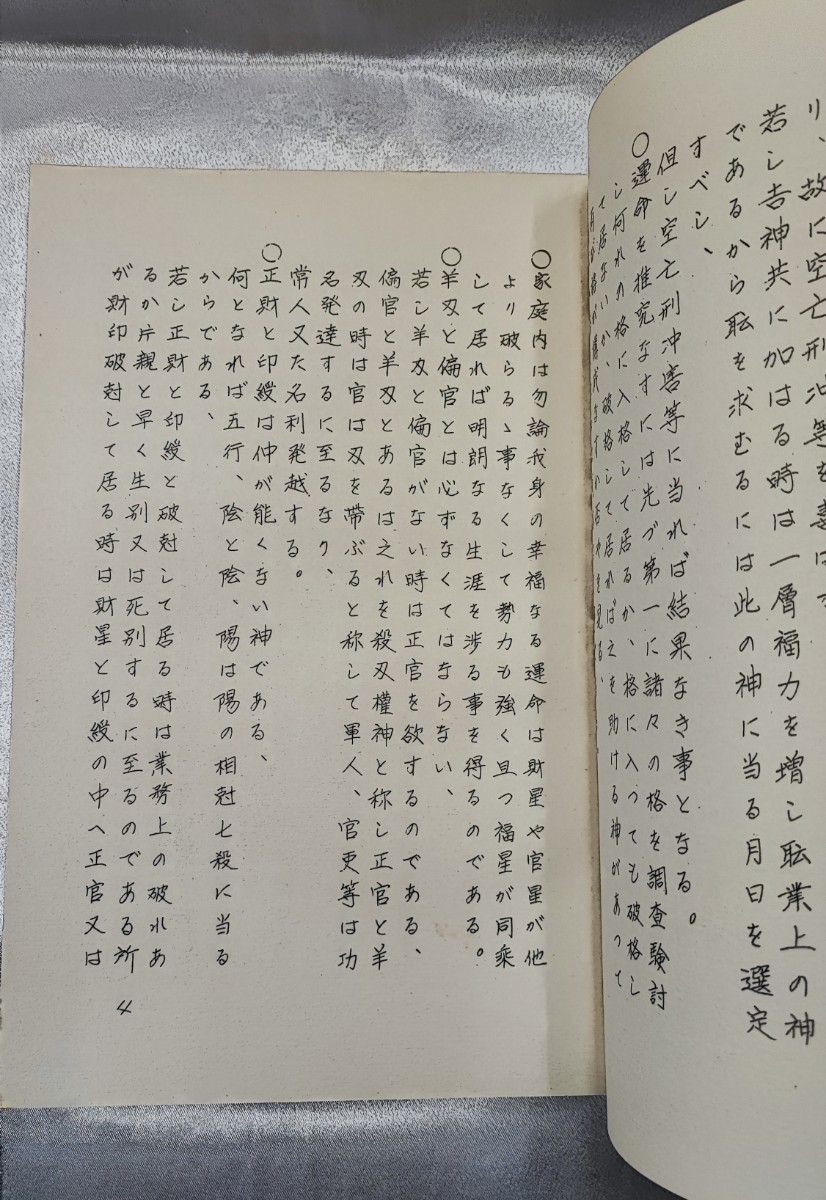 り、故に空亡刑冲等を
若し吉神共に加はる時は一層福力を増し耺業上の神
であるから耺を求むるには此の神に当る月日を選定
すべし、
但し空亡刑冲害等に当れば結果なき事となる。
○運命を推究なすには先づ第一に諸々の格を調査験討
し何れの格に入格して居るか、格に入っても破格し
て居ないか、破格して居れば之を助ける神があって
○家庭内は勿論我身の幸福なる運命は財星や官星が他
より破らるゝ事なくして勢力も強く且つ福星が同乗
して居れば明朗なる生涯を渉る事を得るのである。
○羊刄と偏官とは必ずなくてはならない、
若し羊刄と偏官がない時は正官を欲するのである、
偏官と羊刄とあるは之れを殺刄權神と称し正官と羊
刄の時は官は刄を帯ぶると称して軍人、官吏等は功
名発達するに至るなり、
常人又た名利発越する。
○正財と印綬は仲が能くない神である、
何となれば五行、陰と陰、陽は陽の相尅七殺に当る
からである、
若し正財と印綬と破尅して居る時は業務上の破れあ
るか片親と早く生別又は死別するに至るのである所
が財印破尅して居る時は財星と印綬の中へ正官又は
4